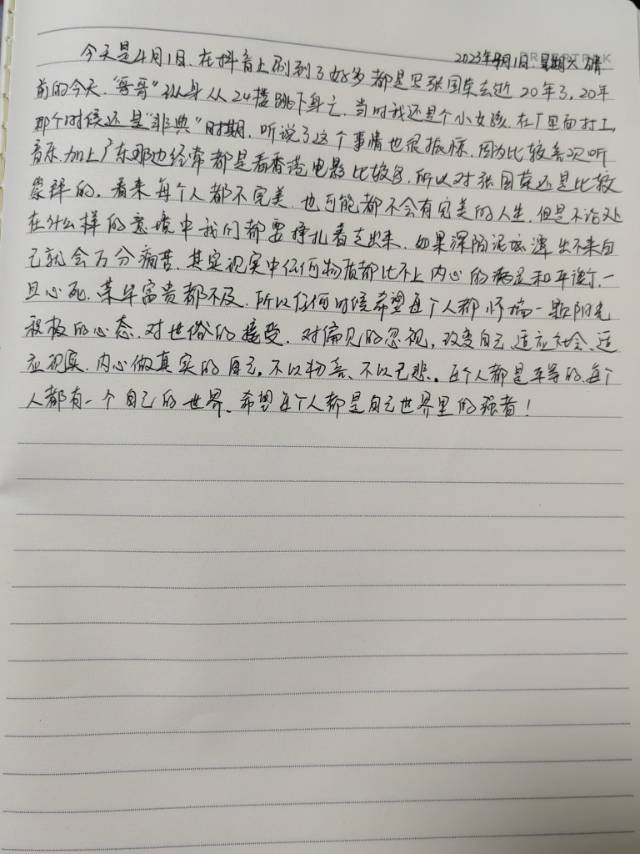 2023年4月1日 星期六 晴
今天是4月1日、在抖音上刷到了好多都是思张国荣去逝20年了,20年
前的今天,“哥哥”纵身从24楼跳下身亡,当时我还是个小女孩,在厂里面打工,
那个时候还是“非典”时期,听说了这个事情也很振惊,因为比较喜欢听
音乐,加上广东那边经常都是看香港电影比较多,所以对张国荣还是比较
崇拜的,看来每个人都不完美,也可能都不会有完美的人生,但是不论处
在什么样的意境中我们都要挣扎着走出来,如果深陷泥潭出不来自
己就会万分痛苦,其实现实中任何物质都比不上内心的满足和平衡,一
旦心死,荣华富贵都不及,所以任何时候希望每个人都怀揣一颗阳光
积极的心态,对世俗的接受,对偏见的忽视,改变自己,适应社会,适
应现实,内心做真实的自己,不以物喜、不以己悲。每个人都是平等的,每个
人都有一个自己的世界、希望每个人都是自己世界里的强者!